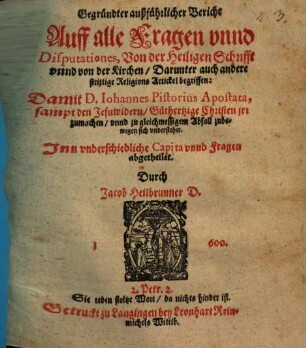 Gegründter außführlicher Bericht
Auff alle Fragen vnnd
Disputationes, Von der Heiligen Schrifft
vnnd von der Kirchen / Darunter auch andere
strittige Religions Artickel begriffen:
Damit D. Iohannes Pistorius Apostata,
sampt den Jesuwidern / Guthertzige Christen jrr
zumachen / vnnd zu gleichmessigem Abfall zube-
wegen sich vndersteht.
Jnn vnderschiedliche Capita vnnd Fragen
abgetheilet.
Durch
Jacob Heilbrunner D.
1 600.
2. Petr. 2.
Sie reden stoltze Wort / da nichts hinder ist.
Getruckt zu Laugingen bey Leonhart Rein-
michels Wittib.